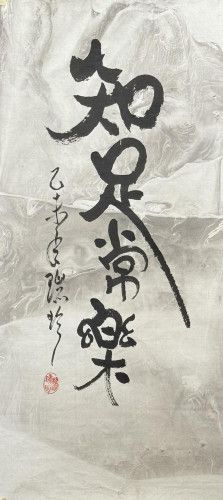 知足常樂
乙未年